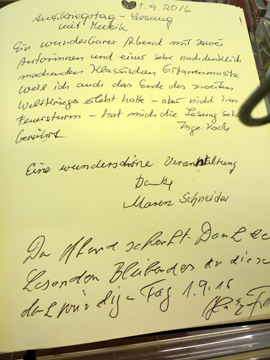 1.9.2016
Antikriegstag - Lesung
mit Musik
Ein wunderbarer Abend mit zwei
Autorinnen und einer sehr nachdenklich
machenden Klassischen Gitarrenmusik
weil ich auch das Ende des zweiten
Weltkriegs erlebt hatte - aber nicht im
Feuersturm - hat mich die Lesung sehr
berührt Inge Koch
Eine wunderschöne Veranstaltung
Danke
Maren Schneider
Der Abend schenkt. Dank
Lesenden Bleibendes
denkwürdigen Tag 1.9.16